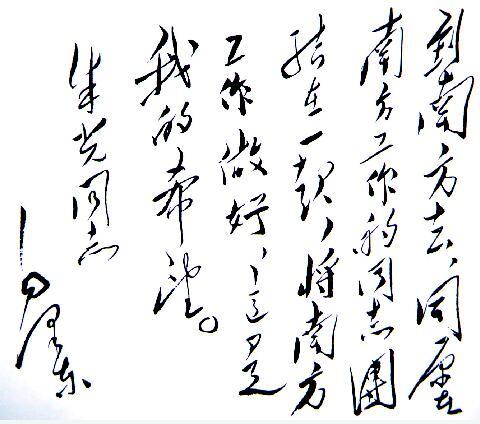 到南方去,同原在
南方工作的同志团
结在一起,将南方
工作做好,这是
我的希望。
朱光同志
毛泽东